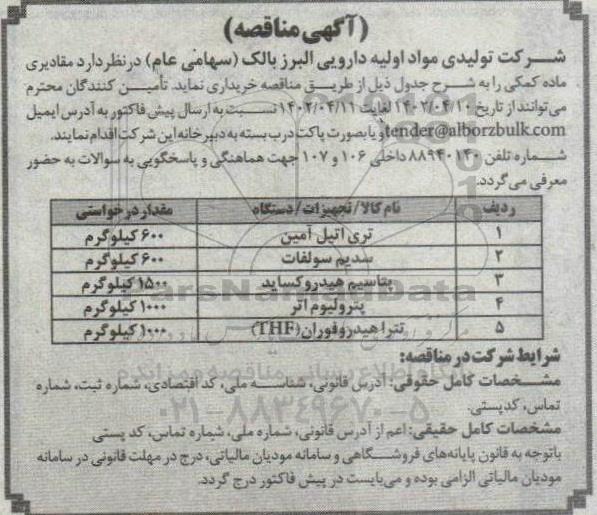 (آگهی مناقصه)
شرکت تولیدی مواد اولیه دارویی البرز بالک (سهامی عام) درنظردارد مقادیری
ماده کمکی را به شرح جدول ذیل از طریق مناقصه خریداری نماید. تأمین کنندگان محترم
می‌توانند از تاریخ ۱۴۰۲/۰۴/۱۰ لغایت ۱۴۰۲/۰۴/۱۱ نسبت به ارسال پیش فاکتور به آدرس ایمیل
tender@alborzbulk.com و یا بصورت پاکت درب بسته به دبیرخانه این شرکت اقدام نمایند.
شماره تلفن ۸۸۹۴۰۱۴۰ داخلی ۱۰۶ و ۱۰۷ جهت هماهنگی و پاسخگویی به سوالات به حضور
معرفی می گردد.
ردیف نام کالا/ تجهیزات/ دستگاه مقدار درخواستی
۱ تری اتیل آمین ۶۰۰ کیلوگرم
۲ سدیم سولفات ۶۰۰ کیلوگرم
۳ پتاسیم هیدروکساید ۱۵۰۰ کیلوگرم
۴ پترولیوم اتر ۱۰۰۰ کیلوگرم
۵ تترا هیدروفوران (THF) ۱۰۰۰ کیلوگرم
ParsNamadData
شرایط شرکت در مناقصه:
پایگاه اطلاع رسانی مناقصه و مزایده
مشخصات کامل حقوقی: آدرس قانونی، شناسه ملی، کد اقتصادی، شماره ثبت، شماره
تماس، کدپستی.
۰۲۱-۸۸۳۴۹۶۷۰-۵
مشخصات کامل حقیقی: اعم از آدرس قانونی، شماره ملی، شماره تماس، کد پستی
باتوجه به قانون پایانه‌های فروشگاهی و سامانه مودیان مالیاتی، درج در مهلت قانونی در سامانه
مودیان مالیاتی الزامی بوده و می‌بایست در پیش فاکتور درج گردد.